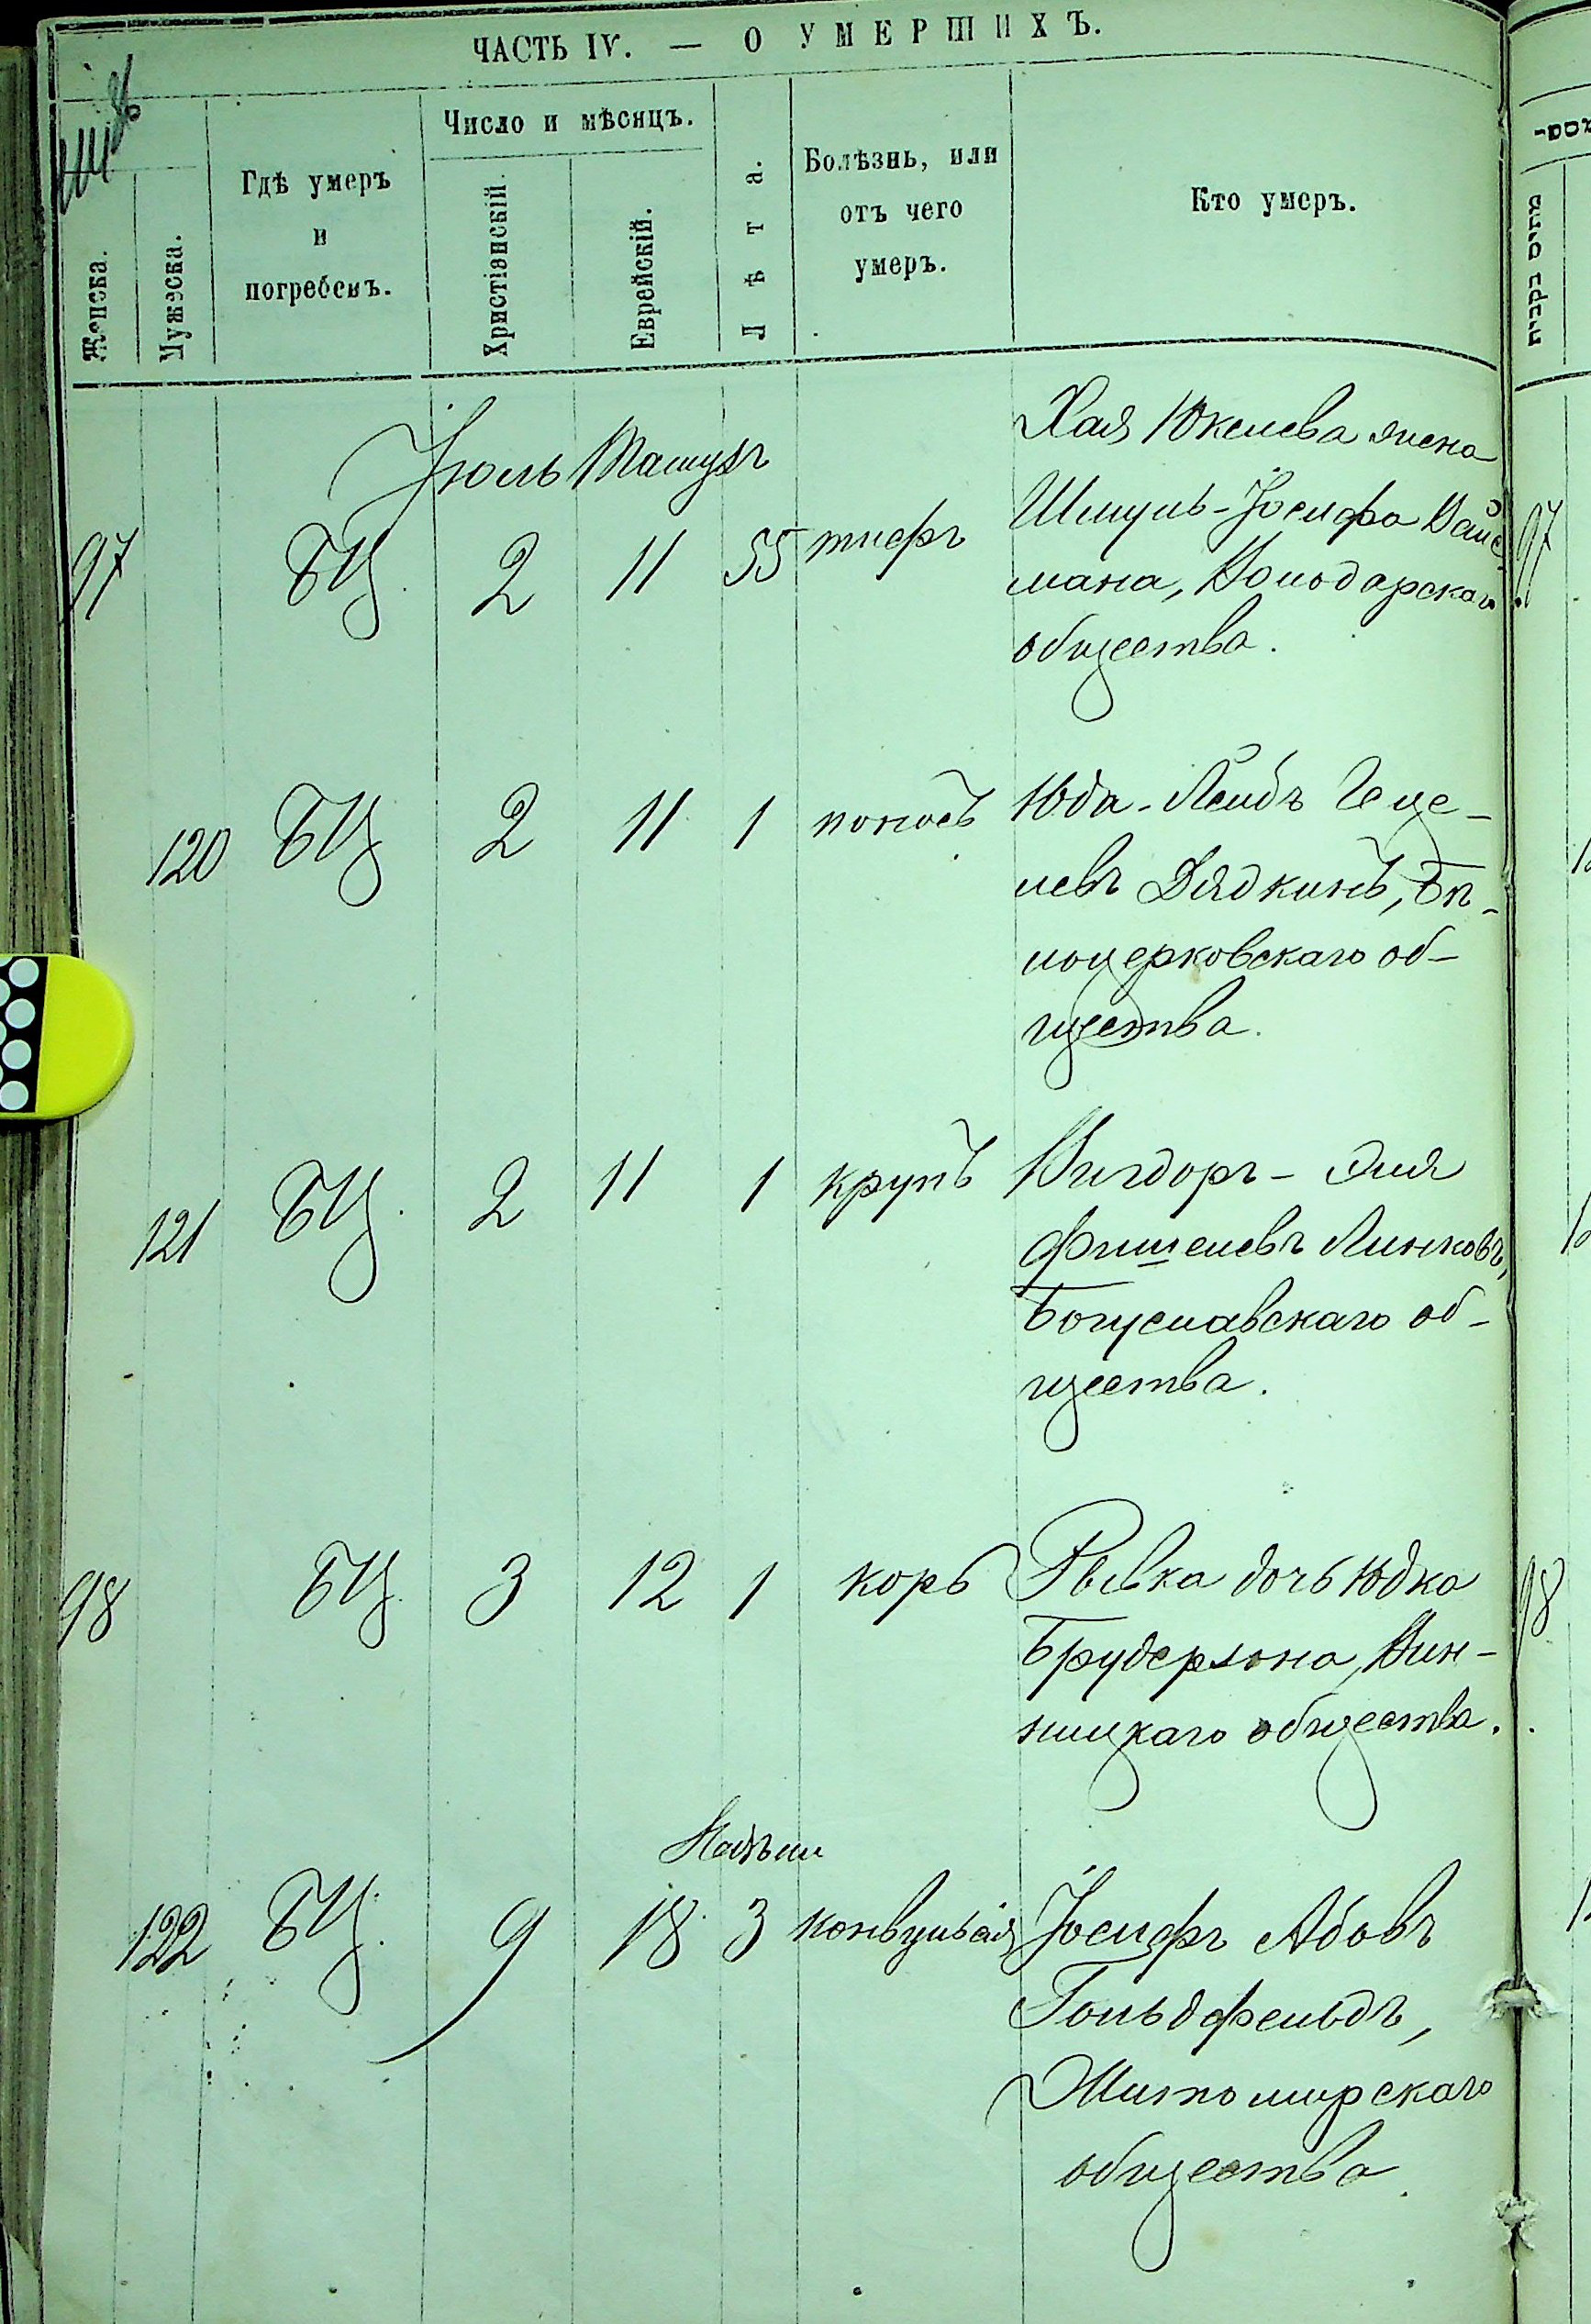 ЧАСТЬ IV. — О УМЕРШИХЪ.
Женска.
Мужеска.
Гдѣ умеръ
и
погребенъ.
Число и мѣсяцъ.
Христіанскій.
Еврейскій.
Лѣта.
Болѣзнь, или
отъ чего
умеръ.
Кто умеръ.
Іюль Тамузъ
97 БЦ. 2 11 55 тифъ
Хая Юкелева жена
Шмуль-Іосифа Вайс
мана, Володарскаго
общества.
97
120 БЦ 2 11 1 поносъ
Юда-Лейбъ Геце-
левъ Дядкинъ, Бѣ-
лоцерковскаго об-
щества.
121 БЦ. 2 11 1 крупъ
Вигдоръ-Эля
Фишелевъ Линковъ,
Богуславскаго об-
щества.
98 БЦ. 3 12 1 корь
Рывка дочь Юдка
Брудерзона, Вин-
ницкаго общества.
98
122 БЦ. 9 18 3 конвульсія
Іосифъ Абовъ
Гольдфельдъ,
Житомирскаго
общества.
מתים נקבות